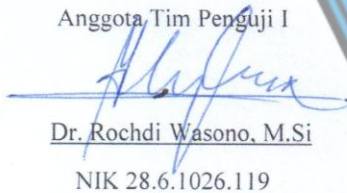 Anggota Tim Penguji I
Dr. Rochdi Wasono, M.Si
NIK 28.6.1026.119